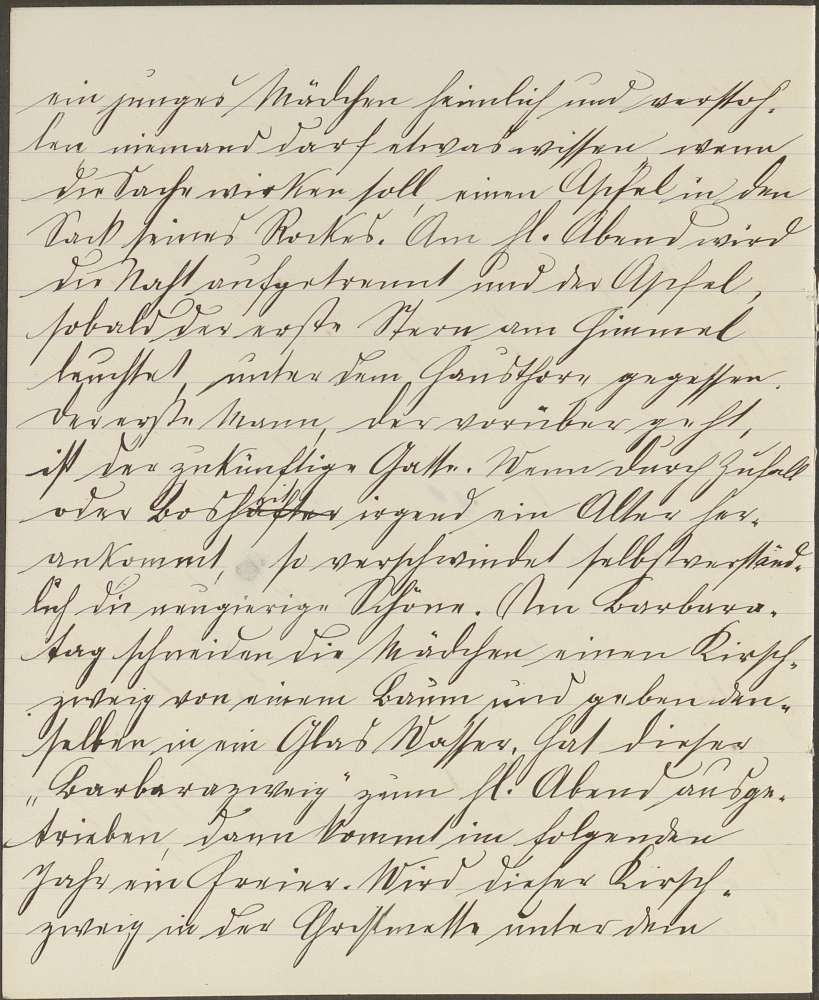 ein junges Mädchen heimlich und verstoh-
len niemand darf etwas wissen wenn
die Sache wirken soll, einen Apfel in den
Sack seines Rockes. Am hl. Abend wird
die Naht aufgetrennt und der Apfel,
sobald der erste Stern am Himmel
leuchtet, unter dem Hausthore gegessen.
Der erste Mann, der vorüber geht,
ist der zukünftige Gatte. Wenn durch Zufall
oder Bosheit irgend ein Alter her-
ankommt, so verschwindet selbstverständ-
lich die neugierige Schöne. Am Barbara-
tag schneiden die Mädchen einen Kirsch-
zweig von einem Baum und geben den-
selben in ein Glas Wasser. Hat dieser
„Barbarazweig" zum hl. Abend ausge-
trieben, dann kommt im folgenden
Jahr ein Freier. Wird dieser Kirsch-
zweig in der Christmette unter dem